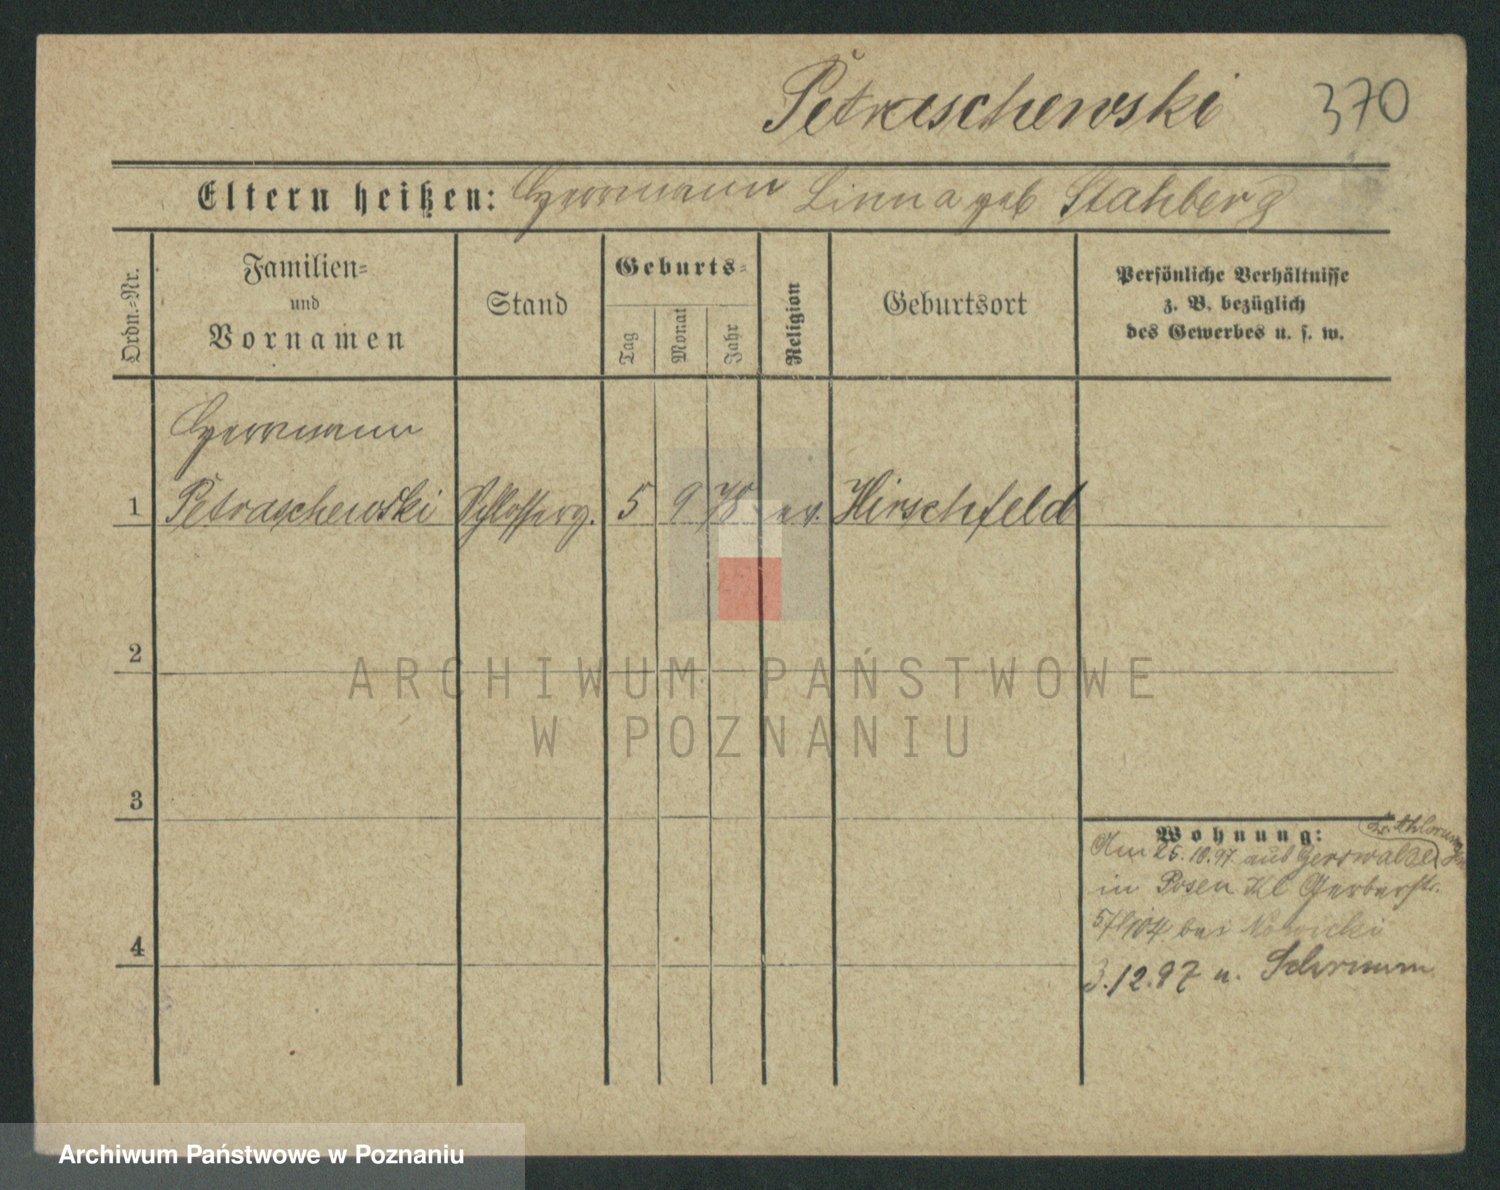 Petraschewski 370
Eltern heißen: Herrmann Linna geb Stahberg
Ordn.=Nr.
Familien=
und
Vornamen
Stand
Geburts=
Tag
Monat
Jahr
Religion
Geburtsort
Persönliche Verhältnisse
z. B. bezüglich
des Gewerbes u. s. w.
Herrmann
1 Petraschewski Schlosserg. 5 9 78 ev. Hirschfeld
2
ARCHIWUM PAŃSTWOWE
W POZNANIU
3
Wohnung:
Am 26.10.97 aus Gerswalde
in Posen Kl Gerberstr.
bei Nowicki
4
3.12.97 n. Schrimm
Archiwum Państwowe w Poznaniu